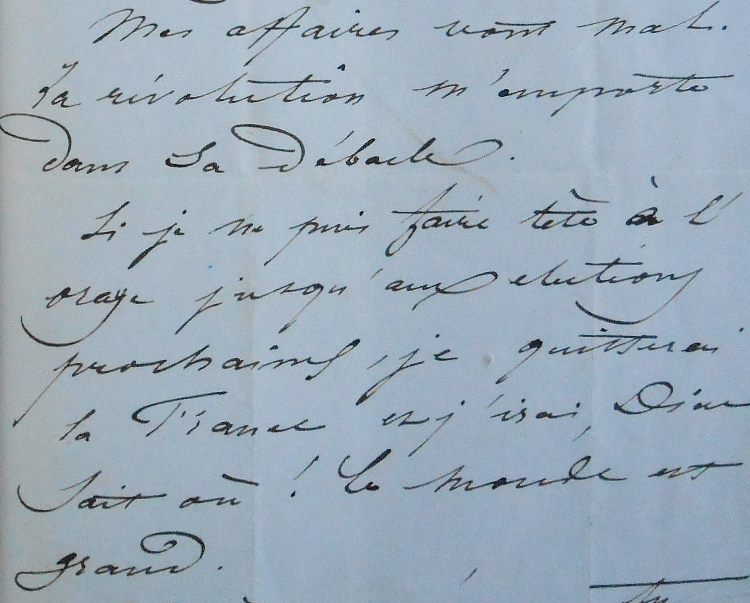 Mes affaires vont mal.
La révolution m'emporte
dans sa débacle.
Si je ne puis faire tête à l'
orage jusqu'aux élections
prochaines, je quitterai
la France et j'irai, Dieu
sait où ! Le monde est
grand.